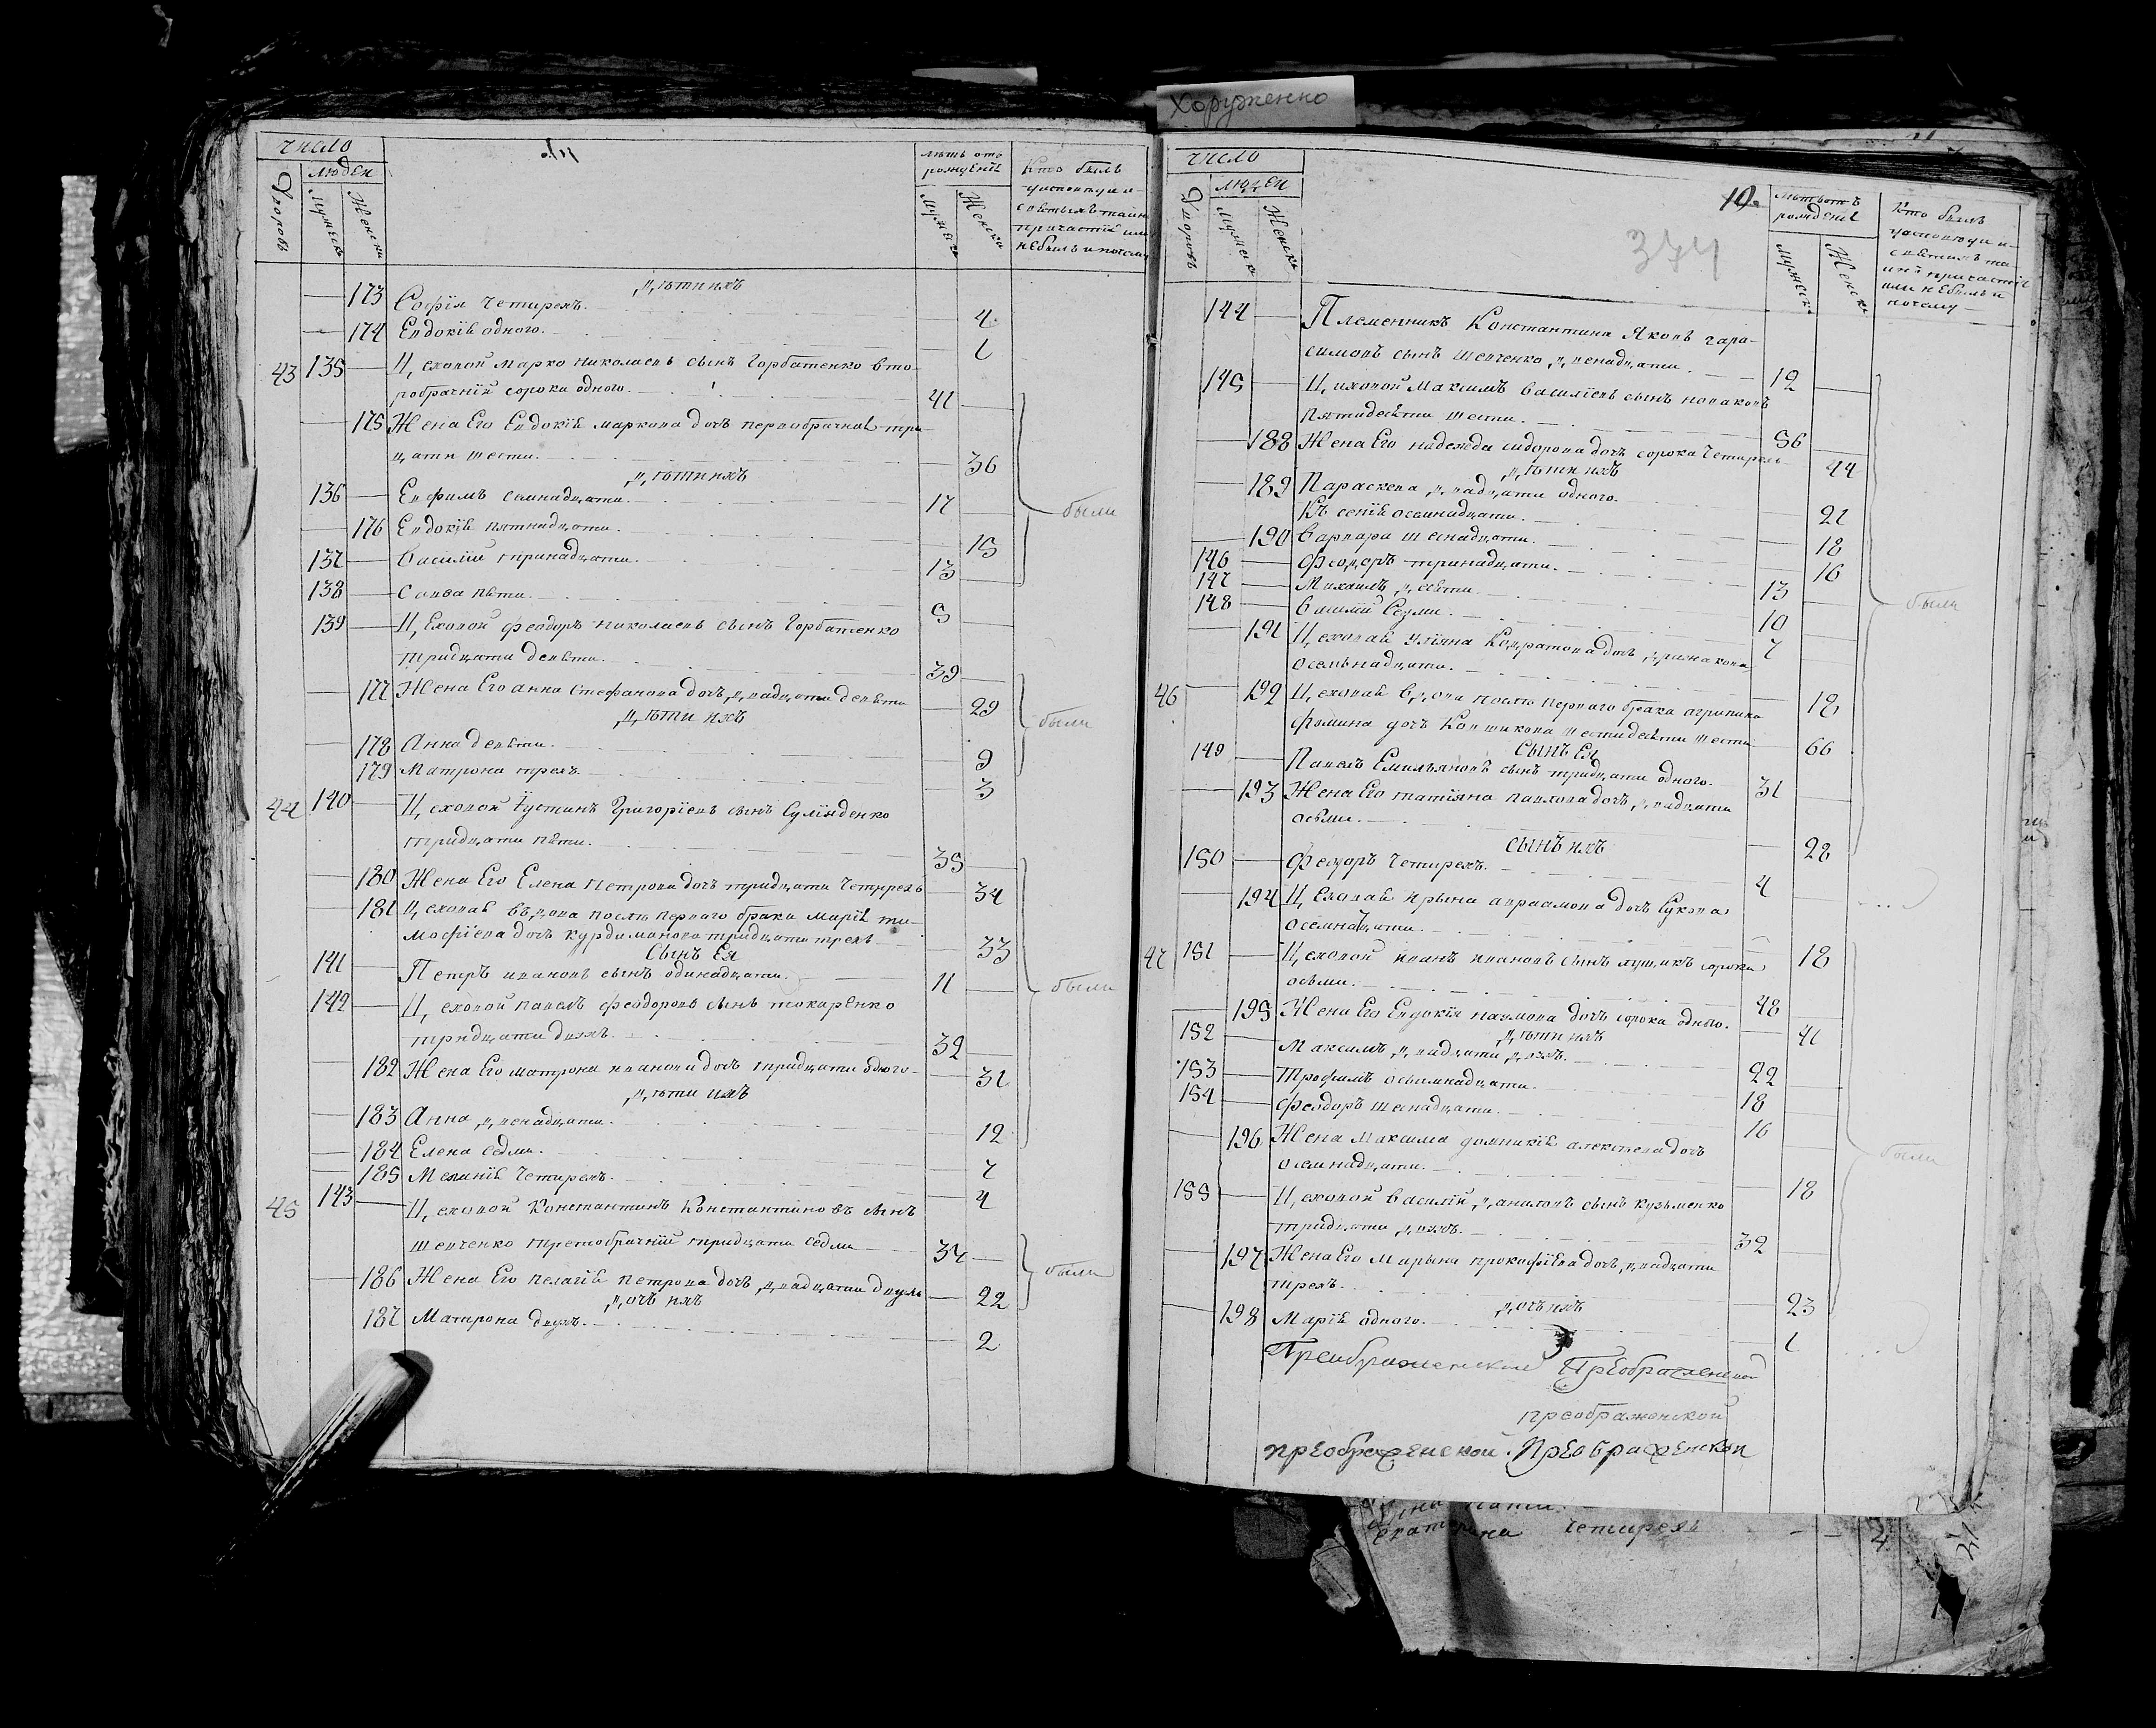 Хоруженко
число
людеи
Дворовъ
Мужеск
Женски
лѣтъ отъ
рожденїѣ
Мужеск
Женски
Кто былъ
причастїи или
небылъ и почему
дѣти ихъ
173 Софїя четирехъ. 4
174 Евдокїѣ одного. 1
43 135 Ц, еховой Марко николаевъ сынъ Горбатенко вто-
робрачнїй сорока одного. 41
175 Жена Его Евдокїѣ маркова дочь первобрачнаѣ три-
дцати шести. 36
дѣти ихъ
136 Евфимъ семнадцати. 17
были
176 Евдокїѣ пятнадцати. 15
137 Василїй тринадцати. 13
138 Савва пѣти. 5
139 Ц, Еховой феодоръ николаевъ сынъ Горбатенко
тридцати девѣти. 39
177 Жена Его анна Стефанова дочъ двадцати девѣти 29
дѣти ихъ
были
178 Анна девѣти. 9
179 Матрона трехъ. 3
44 140 Ц, еховой Іустинъ Григорїевъ сынъ Сулїнденко
тридцати пѣти. 35
180 Жена Его Елена петрова дочъ тридцати Четирехъ 34
181 Ц, еховаѣ вдова послѣ перваго брака Марїѣ ти-
мофїева дочъ курдиманова тридцати трехъ 33
Сынъ Ея
141 Петръ ивановъ сынъ одинадцати. 11
были
142 Ц, еховой павелъ феодоровъ сынъ токаренко
тридцати двухъ. 32
182 Жена Его матрона иванова дочъ тридцати одного 31
дѣти ихъ
183 Анна двенадцати. 12
184 Елена седми. 7
185 Меланїѣ Четирехъ. 4
45 143 Ц, еховой Константинъ Константиновъ сынъ
шевченко третобрачнїй тридцати седми 37
были
186 Жена Его пелагїѣ петрова дочъ двадцати двухъ 22
дочъ ихъ
187 Матрона двухъ. 2
число
людеи
Дворовъ
Мужеск
Женски
10.
374
лѣтъ отъ
рожденїѣ
Мужеск
Женски
Кто былъ
или небылъ и
почему
144 Племенникъ Константина Яковъ гара-
симовъ сынъ шевченко двенадцати. 12
145 Ц, еховой Максимъ Василїевъ сынъ новаковъ
пятидесѣти шести. 56
188 Жена Его надежда сидорова дочъ сорока Четирехъ 44
дѣти ихъ
189 Параскева двадцати одного. 21
Къ сенїѣ осемнадцати. 18
190 Варвара шеснадцати. 16
146 Феодоръ тринадцати. 13
147 Михаилъ десѣти. 10
были
148 Василїй Седми. 7
191 Ц, еховаѣ улїяна Кондратова дочъ
осемьнадцати. 18
46 192 Ц, еховаѣ вдова послѣ перваго брака агрипина
фомина дочъ Ковшикова шестидесѣти шести 66
Сынъ Ея
149 Павелъ Емильяновъ сынъ тридцати одного. 31
193 Жена Его татїяна павлова дочъ двадцати
осьми. 28
сынъ ихъ
150 Феодоръ Четирехъ. 4
194 Ц, Еховаѣ ирына авраамова дочъ Сукова
осемнадцати. 18
47 151 Ц, еховой иванъ ивановъ сынъ лущикъ сорока
осьми. 48
195 Жена Его Евдокїя наумова дочъ сорока одного. 41
дѣти ихъ
152 Максимъ двадцати двухъ. 22
153 Трофимъ осьмнадцати. 18
154 феодоръ шеснадцати. 16
196 Жена Максима домникїѣ алексѣева дочъ
осемнадцати. 18
были
155 Ц, еховой Василїй даниловъ сынъ кузьменко
тридцати двухъ. 32
197 Жена Его Марына прокофїева дочъ двадцати
трехъ. 23
дочъ ихъ
198 Марїѣ одного. 1
Преображенской Преображенской
преображенской
преображенской. Преображенской
Екатерина четирехъ 4